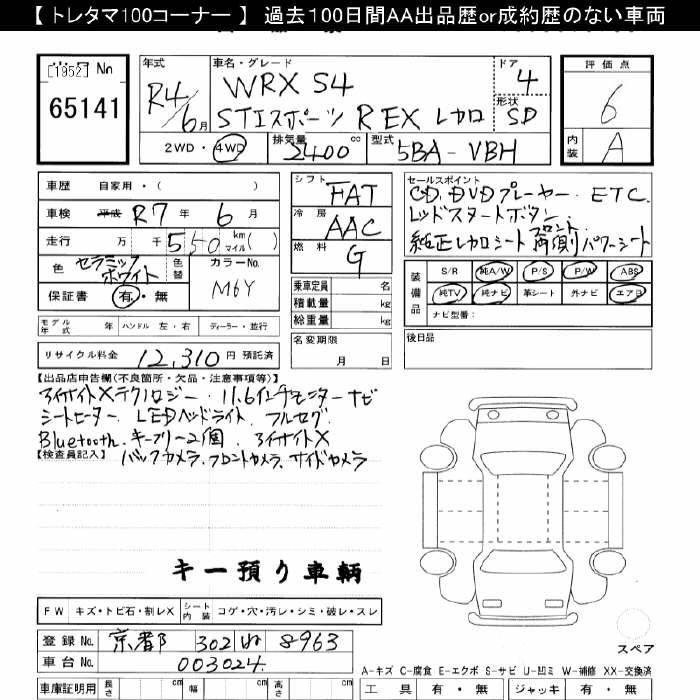 【 トレタマ100コーナー 】 過去100日間AA出品歴or成約歴のない車両
[1952] No
65141
年式
R4/6月
車名・グレード
WRX S4
STIスポーツ R EX レカロ
ドア
4
形状
SD
評価点
6
内装
A
2WD・4WD
排気量
2400cc
型式
5BA-VBH
車歴 自家用・( )
車検 平成 R7年 6月
走行 万 千 550 km マイル( )
色 セラミックホワイト
色替
カラーNo.
M6Y
保証書 有・無
シフト
FAT
冷房
AAC
燃料
G
乗車定員 名
積載量 kg
総重量 kg
セールスポイント
CD、DVDプレーヤー・ETC
レッドスタートボタン
フロント
純正レカロシート 両側パワーシート
装備品
S/R 純A/W P/S P/W ABS
純TV 純ナビ 革シート 外ナビ エアB
ナビ型番:
モデル年式 年 ハンドル 左・右 ディーラー・並行
名変期限
月 日
後日品
リサイクル料金 12,310円 預託済
【出品店申告欄(不良箇所・欠品・注意事項等)】
アイサイトXテクノロジー 11.6インチモニターナビ
シートヒーター LEDヘッドライト フルセグ
Bluetooth、キーフリー2個 アイサイトX
【検査員記入】 バックカメラ、フロントカメラ、サイドカメラ
キー預り車輌
FW キズ・トビ石・割レX シート内装 コゲ・穴・汚レ・シミ・破レ・スレ
登録No. 京都 302 ぬ 8963
車台No. 003024
スペア
A-キズ C-腐食 E-エクボ S-サビ U-凹ミ W-補修 XX-交換済
車庫証明用 長さ cm 幅 cm 高さ cm
工具 有・無 ジャッキ 有・無